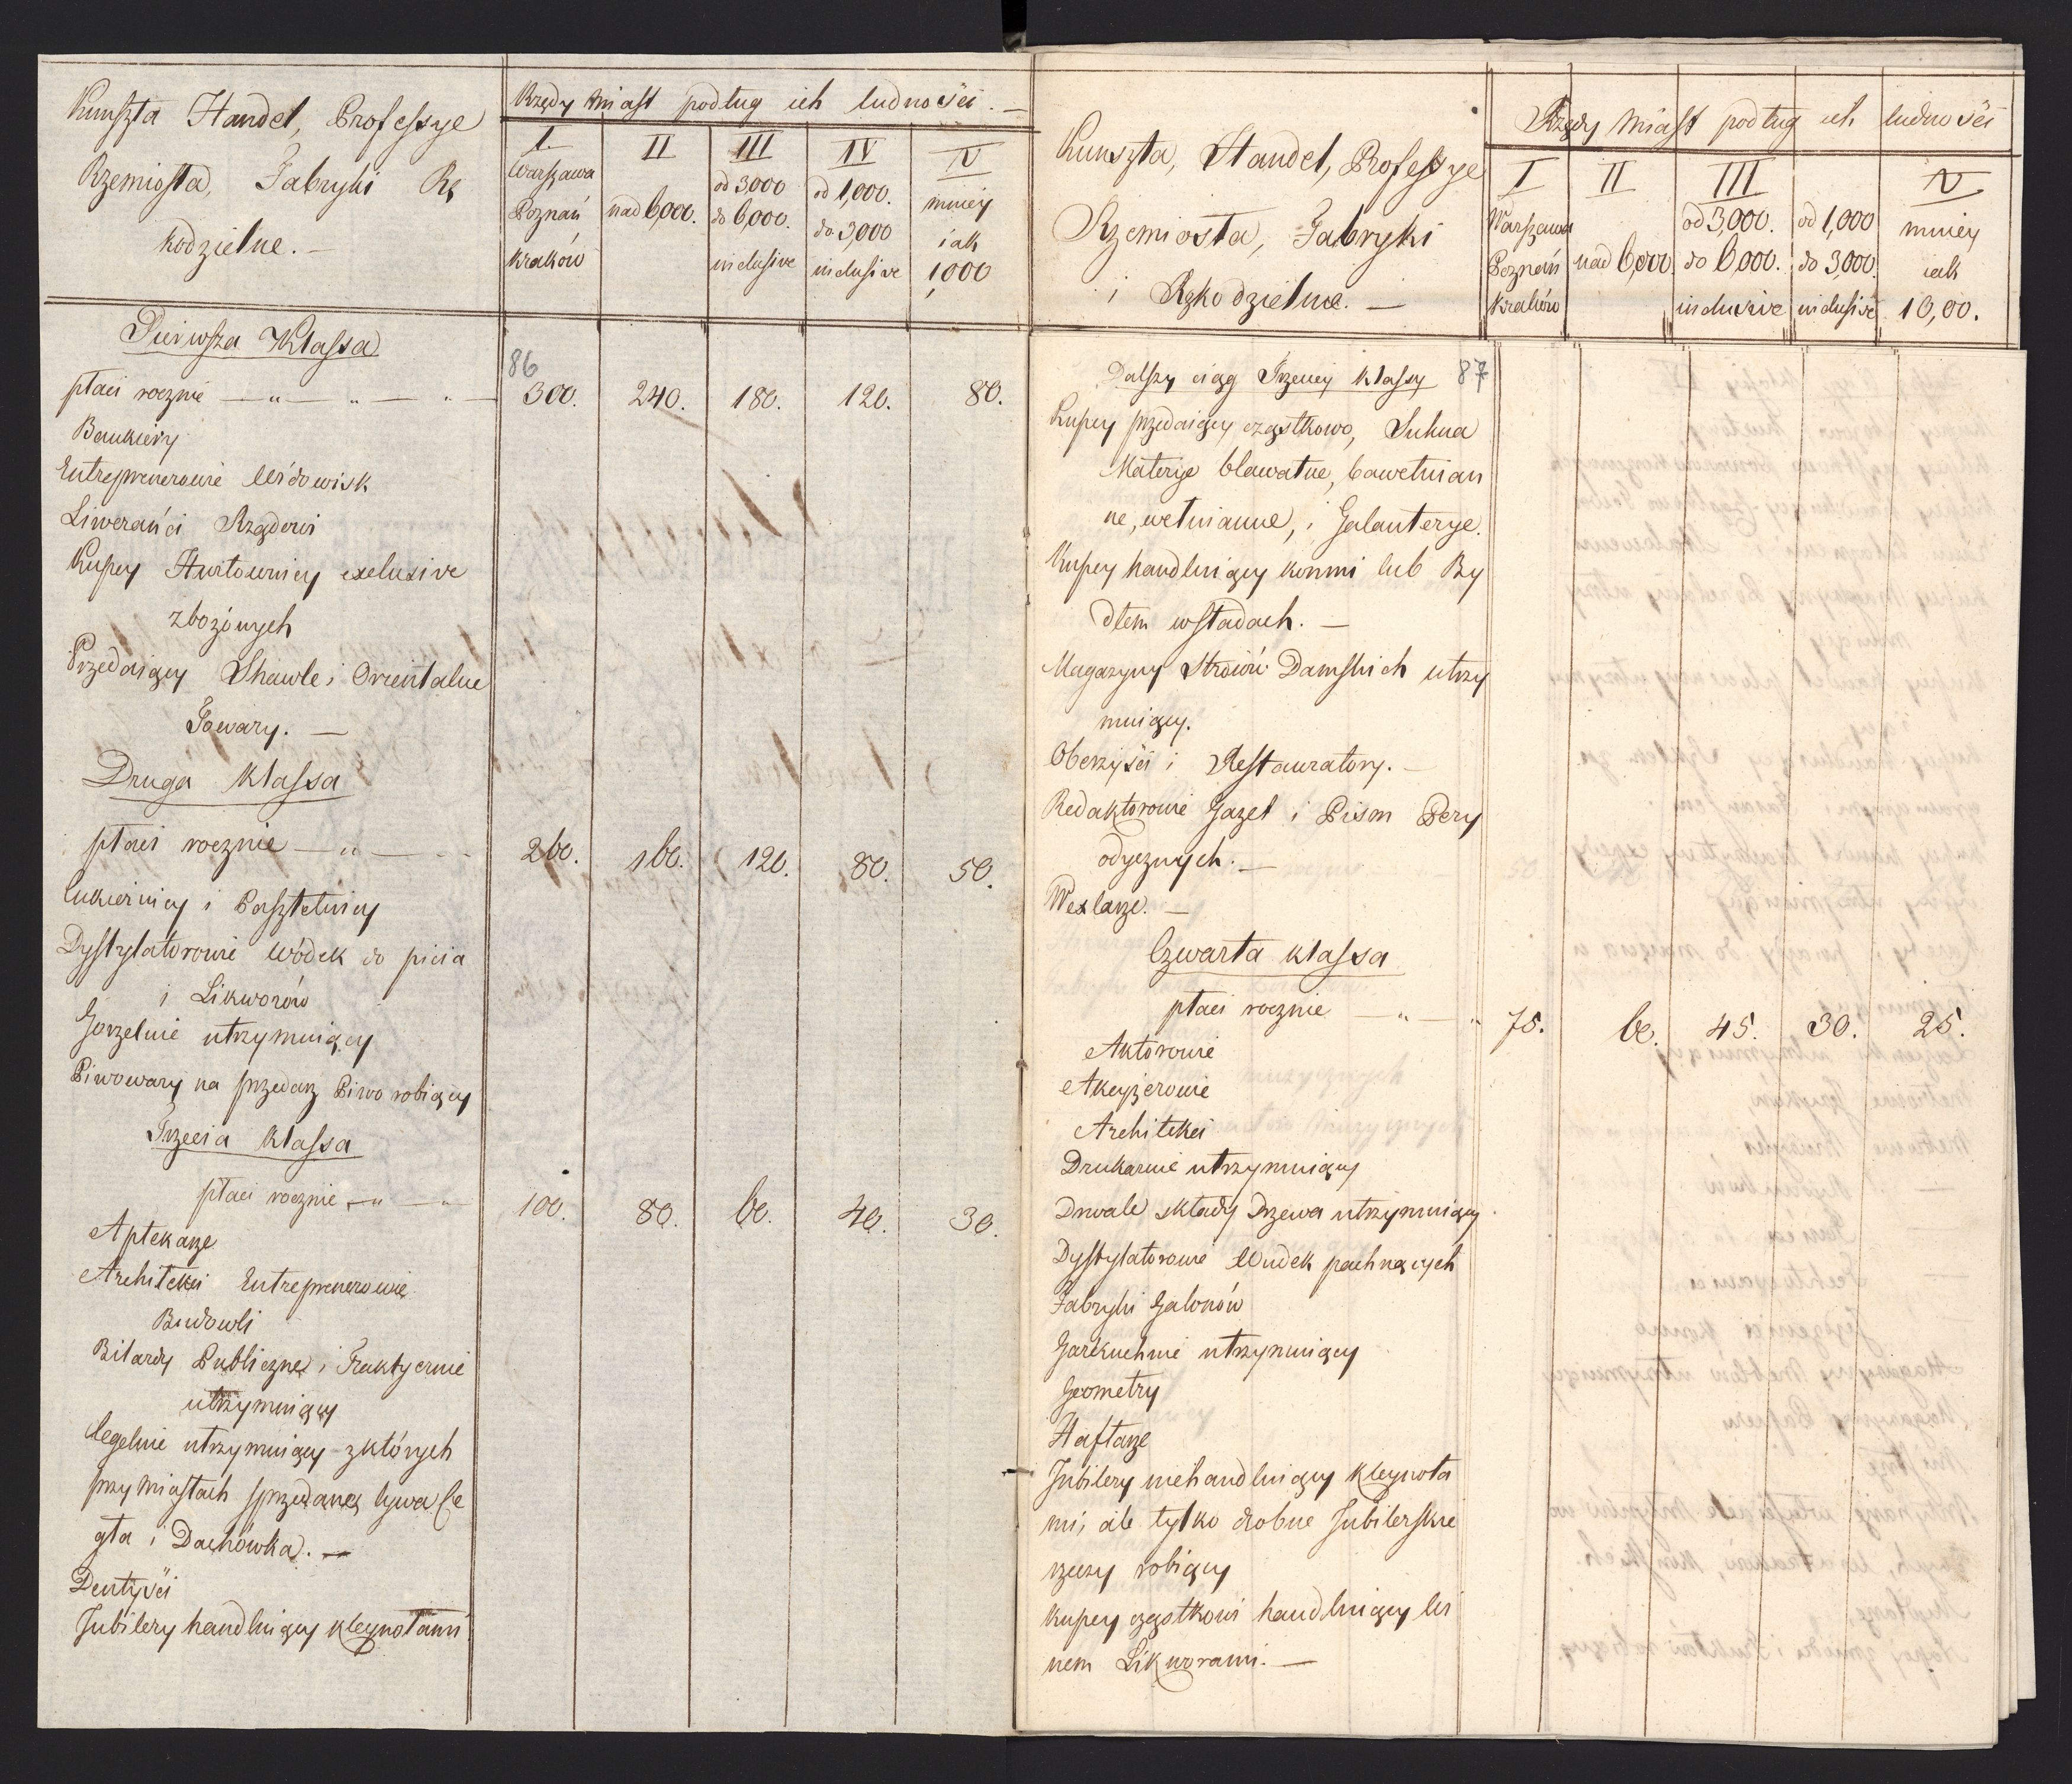 Kunszta Handel, Professye
Rzemiosła, Fabryki Rę
kodzielne. —
Rzędy Miast podług ich ludności. —
I. II III IV V
Warszawa Poznań Kraków
nad 6,000.
od 3,000 do 6,000. inclusive
od 1,000. do 3,000 inclusive
mniey iak 1,000
Pierwsza Klassa
86
płaci rocznie — „ — „ — „ — 300. 240. 180. 120. 80.
Bankiery
Entreprenerowie Widowisk
Liweranci Rządowi
Kupcy Hurtownicy exclusive
zbożowych
Przedaiący Shawle i Orientalne
Towary. —
Druga Klassa
płaci rocznie — „ — 200. 160. 120. 80. 50.
Cukiernicy i Pasztetnicy
Dystylatorowie Wódek do picia
i Likworów
Gorzelnie utrzymuiący
Piwowary na przedaż Piwo robiący
Trzecia Klassa
płaci rocznie — „ — „ 100. 80. 60. 40. 30.
Aptekarze
Architekci Entreprenerowie
Budowli
Bilardy Publiczne i Traktyernie
utrzymuiący
Cegelnie utrzymuiący z których
przy Miastach sprzedaną bywa Ce
gła i Dachówka. —
Dentyści
Jubilery handluiący kleynotami
Kunszta, Handel, Professye
Rzemiosła, Fabryki
i Rękodzielne. —
Rzędy Miast podług ich ludności
I II III V
Warszawa Poznań Kraków
nad 6,000.
od 3,000. do 6,000. inclusive
od 1,000 do 3,000. inclusive
mniey iak 10,00.
Dalszy ciąg Trzeciey Klassy 87
Kupcy przedaiący cząstkowo, Sukna
Materye bławatne, bawełnian
ne, wełnianne, i Galanterye.
Kupcy handluiący konmi lub By
dłem w stadach. —
Magazyny Stroiów Damskich utrzy
muiący.
Oberzyści i Restauratory. —
Redaktorowie Gazet i Pism Pery
odycznych. —
Wexlarze. —
Czwarta klassa
płaci rocznie — „ — „ 75. 60. 45. 30. 25.
Aktorowie
Akcyzerowie
Architekci
Drukarnie utrzymuiący
Drwale składy Drzewa utrzymuiący
Dystylatorowie Wudek pachnących
Fabryki Galonów
Garkuchnie utrzymuiący
Geometry
Haftarze
Jubilery niehandluiący Kleynota
mi, ale tylko drobne Jubilerskie
rzeczy robiący
Kupcy cząstkowi handluiący Wi
nem Likworami. —